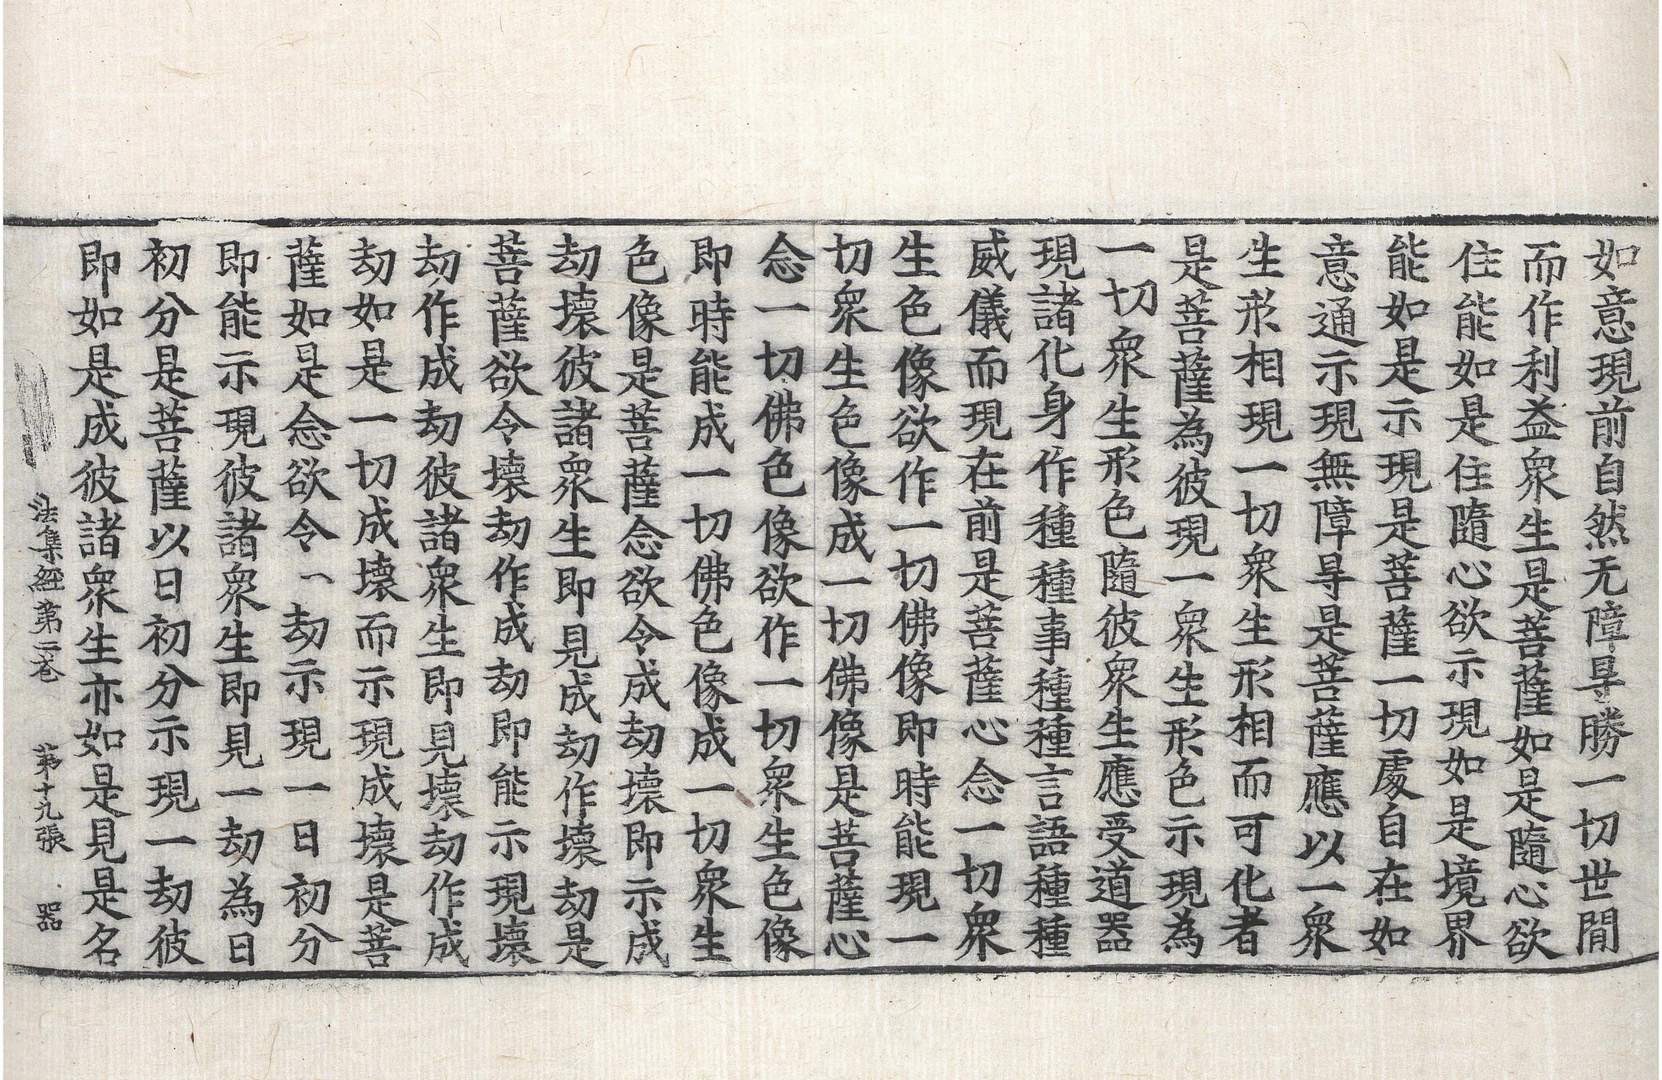 如意現前自然无障㝵勝一切世間
而作利益衆生是菩薩如是隨心欲
住能如是住隨心欲示現如是境界
能如是示現是菩薩一切處自在如
意通示現無障㝵是菩薩應以一衆
生形相現一切衆生形相而可化者
是菩薩為彼現一衆生形色示現為
一切衆生形色隨彼衆生應受道器
現諸化身作種種事種種言語種種
威儀而現在前是菩薩心念一切衆
生色像欲作一切佛像即時能現一
切衆生色像成一切佛像是菩薩心
念一切佛色像欲作一切衆生色像
即時能成一切佛色像成一切衆生
色像是菩薩念欲令成劫壞即示成
劫壞彼諸衆生即見成劫作壞劫是
菩薩欲令壞劫作成劫即能示現壞
劫作成劫彼諸衆生即見壞劫作成
劫如是一切成壞而示現成壞是菩
薩如是念欲令一劫示現一日初分
即能示現彼諸衆生即見一劫為日
初分是菩薩以日初分示現一劫彼
即如是成彼諸衆生亦如是見是名
法集經第二卷 第十九張 器